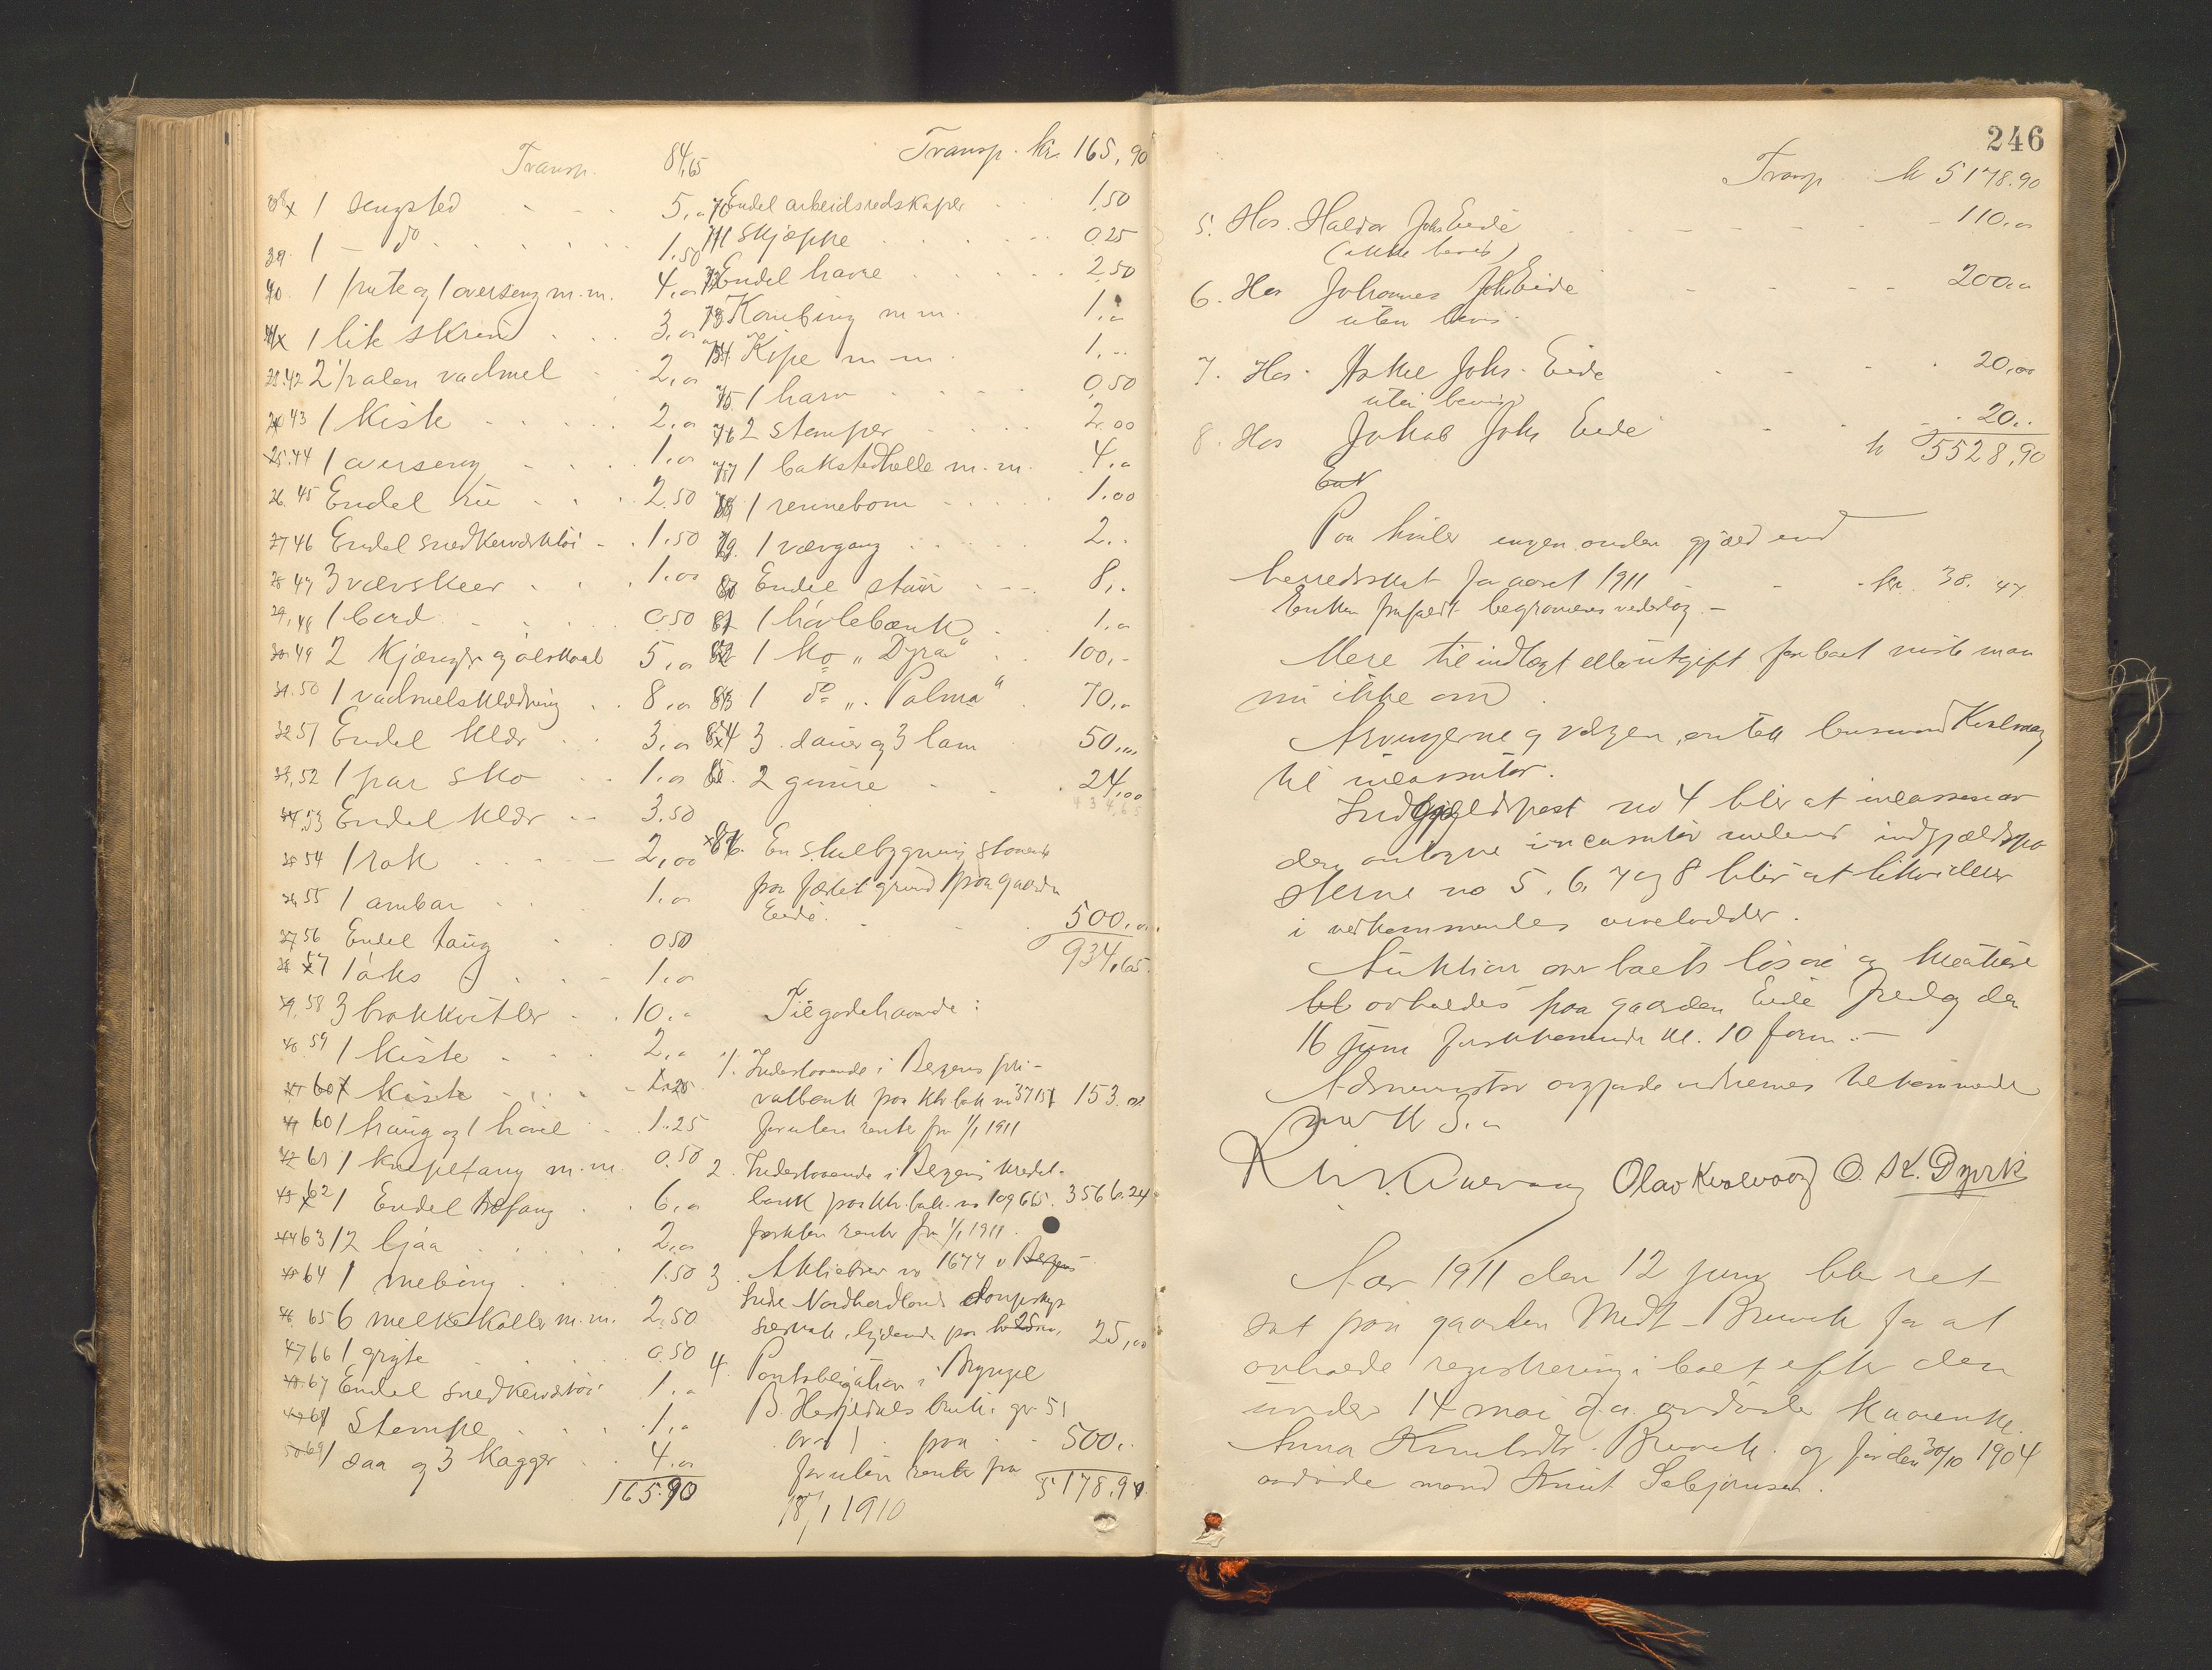 Transp. 84,65
38x 1 sengsted - - - 5,oo
39. 1 - do . . . . . 1.50
40. 1 pute og 1 overseng m.m. 4,oo
41x 1 lite skrin . . . 3,oo
42 2 1/2 alen vadmel . . 2,oo
43 1 Kiste . . . . . 2,oo
44 1 overseng . . . . 1,oo
45 Endel . . . 2.50
46 Endel snedkerværktøi - . 1.50
47 3 vævskeer . . . 1.oo
48 1 bord . . . . . 0.50
49 2 Kjænger og ølskaal 5,oo
50 1 vadmelsklædning . . 8,oo
51 Endel klær . . . 3,oo
52 1 par sko . . . 1.oo
53 Endel klær - - 3.50
54 1 rok . . . . 2,oo
55 1 ambar . . . . 1.oo
56 Endel taug . . . 0.50
57 1 øks . . . . 1.oo
58 3 brokkvitler . . 10.oo
59 1 kiste . . . . 2,oo
60 1 Kiste . . . . 1.25
60 1 haug og 1 haavel . . 1.25
61 1 m.m. 0.50
62 1 Endel . . 6,oo
63 12 ljaa . . . . . 2,oo
64 1 mebing . . . . 1.50
65 6 melkekoller m.m. 2,50
66 1 gryte . . . . . 0.50
67 Endel snedkerværktøi 1.oo
68 1 Stampe . . . . 1.oo
69 1 saa og 3 Kagger . . 4.oo
165.90
Transp. kr. 165,90
70 Endel arbeidsredskaper . . . 1.50
71 1 skjæppe . . . . . 0.25
72 Endel havre . . . . . 2.50
73 Kornbing m m. . . 1.oo
74 Kipe m m . . . 1.oo
75. 1 harv . . . . 0.50
76 2 stamper . . . . 2.oo
77 1 bakstehelle m.m. 4.oo
78 1 rennebom . . . . 1.00
79. 1 vævgang . . . . 2..
80 Endel staur - - - 8,.
81 1 høvlebænk . . 1.oo
82 1 ko "Dyra" . . 100,-
83 1 do " Palma" . 70,oo
84 3 sauer og 3 lam . 50,oo
85. 2 gimre . . . . 24,00
434,65
x86. En skulbygning staaende
paa fæstet grund paa gaarden
Eide. . . . . 500.oo
934,65.
Tilgodehavende:
1. Indestaaende i Bergens pri-
vatbank paa ktr.bok no 37151 153.oo
foruten rente fra 1/1 1911
2. Indestaaende i Bergens kredit-
bank paa ktr.bok. no 109665. 3566.24
foruten rente fra 1/1 1911.
3. Aktiebrev no 1677 i Bergens
Indre Nordhordlands Dampskips
selskab, lydende paa kr 25oo, 25,oo
4. Pantobligation i
B. Hesjedals bruk: gr. 51
br. 1 . paa . . 500..
foruten rente fra
18/1 1910 5178,90.
246
Transp . . kr 5178.90
5. Hos. Haldor Johs Eide - - - 110,oo
(uten bevis)
6. Hos Johannes Johs Eide - - - 200.oo
uten bevis.
7. Hos. Johs. Eide . - - 20,oo
uten bevis
8. Hos Jakob Johs Eide - - . 20..
kr 5528,90
Bok
Paa hviler ingen anden gjæld end
herredsskat for aaret 1911 - - kr. 38. 47
Enken frafaldt begravelses vederlag. -
Mere til indtægt eller utgift for boet viste man
nu ikke om.
Arvingerne og vergen, antok lensmand Kvalvaag
til incassator.
Indgjældspost no 4 blir at incassere av
den antagne incassator medens indgjældspo
sterne no 5. 6. 7 og 8 blir at likvidere
i vedkommendes arvelodder.
Auktion over boets løsøre og kreature
bl avholdes paa gaarden Eide fredag den
16 juni førstkommende kl. 10 form. -
Administrator avgjorde vidnernes tilkommende
med kr 3.oo
Olav Kvalvaag O. K. Dyrk
Aar 1911 den 12 juni blev ret
sat paa gaarden Midt-Bruvik for at
avholde registrering i boet efter den
under 14 mai d.a. avdøde kaarenke
Anna Knutsdtr. Bruvik. og før den 30/10 1904
avdøde mand Knut Sebjørnsen.